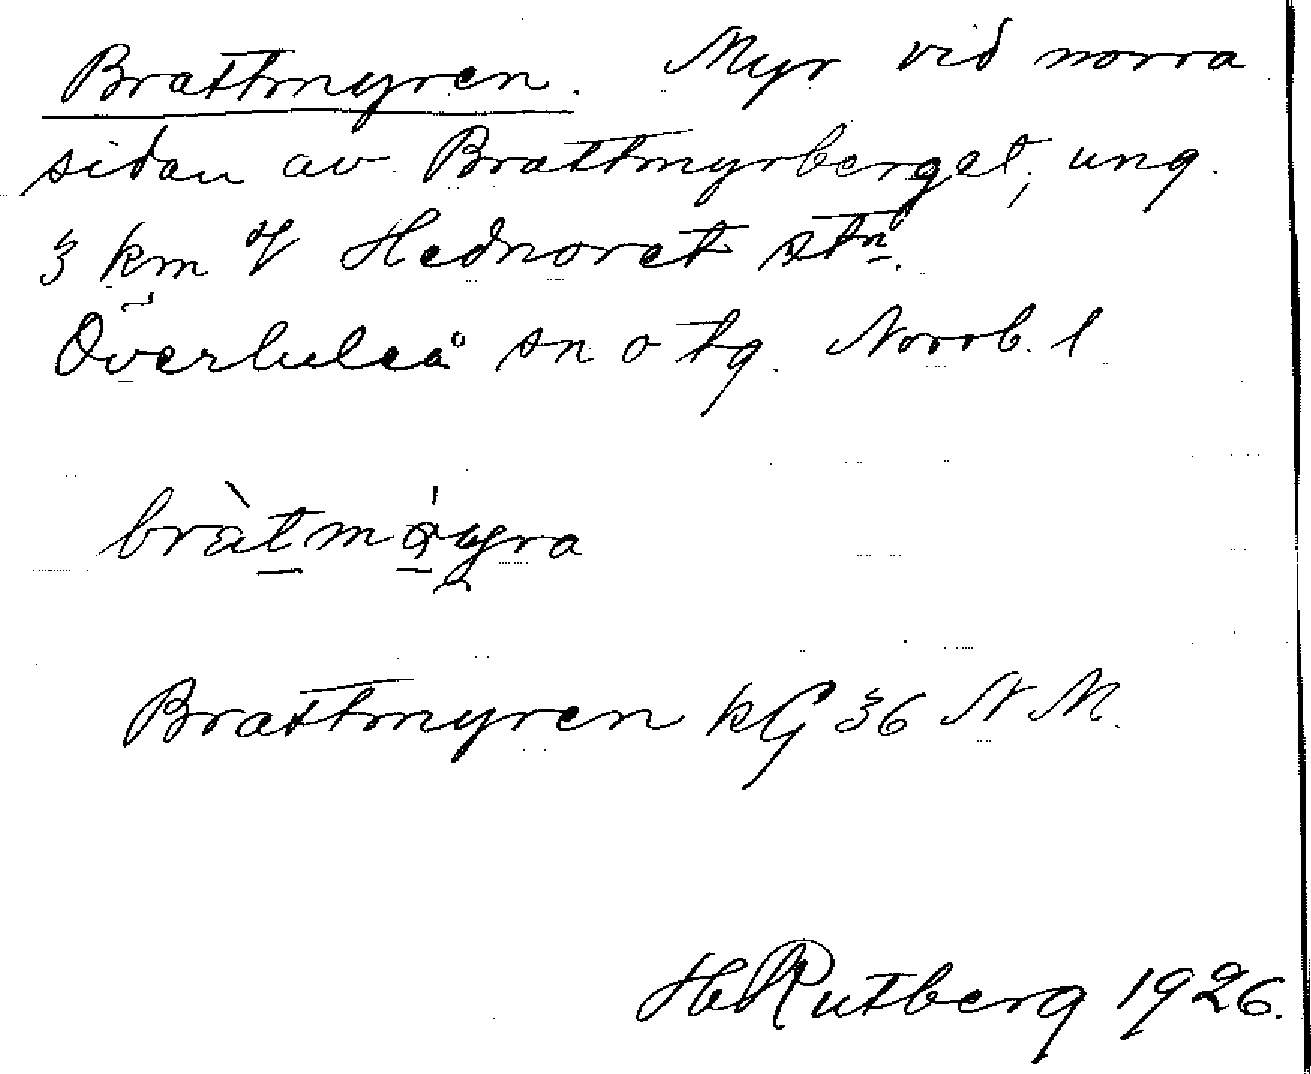 Brattmyren. Myr vid norra
sidan av Brattmyrberget, ung.
3 km V Hednoret stn.
Överluleå sn o tg. Norrb. l
Brattmyren kG 36 N M.
H Rutberg 1926.